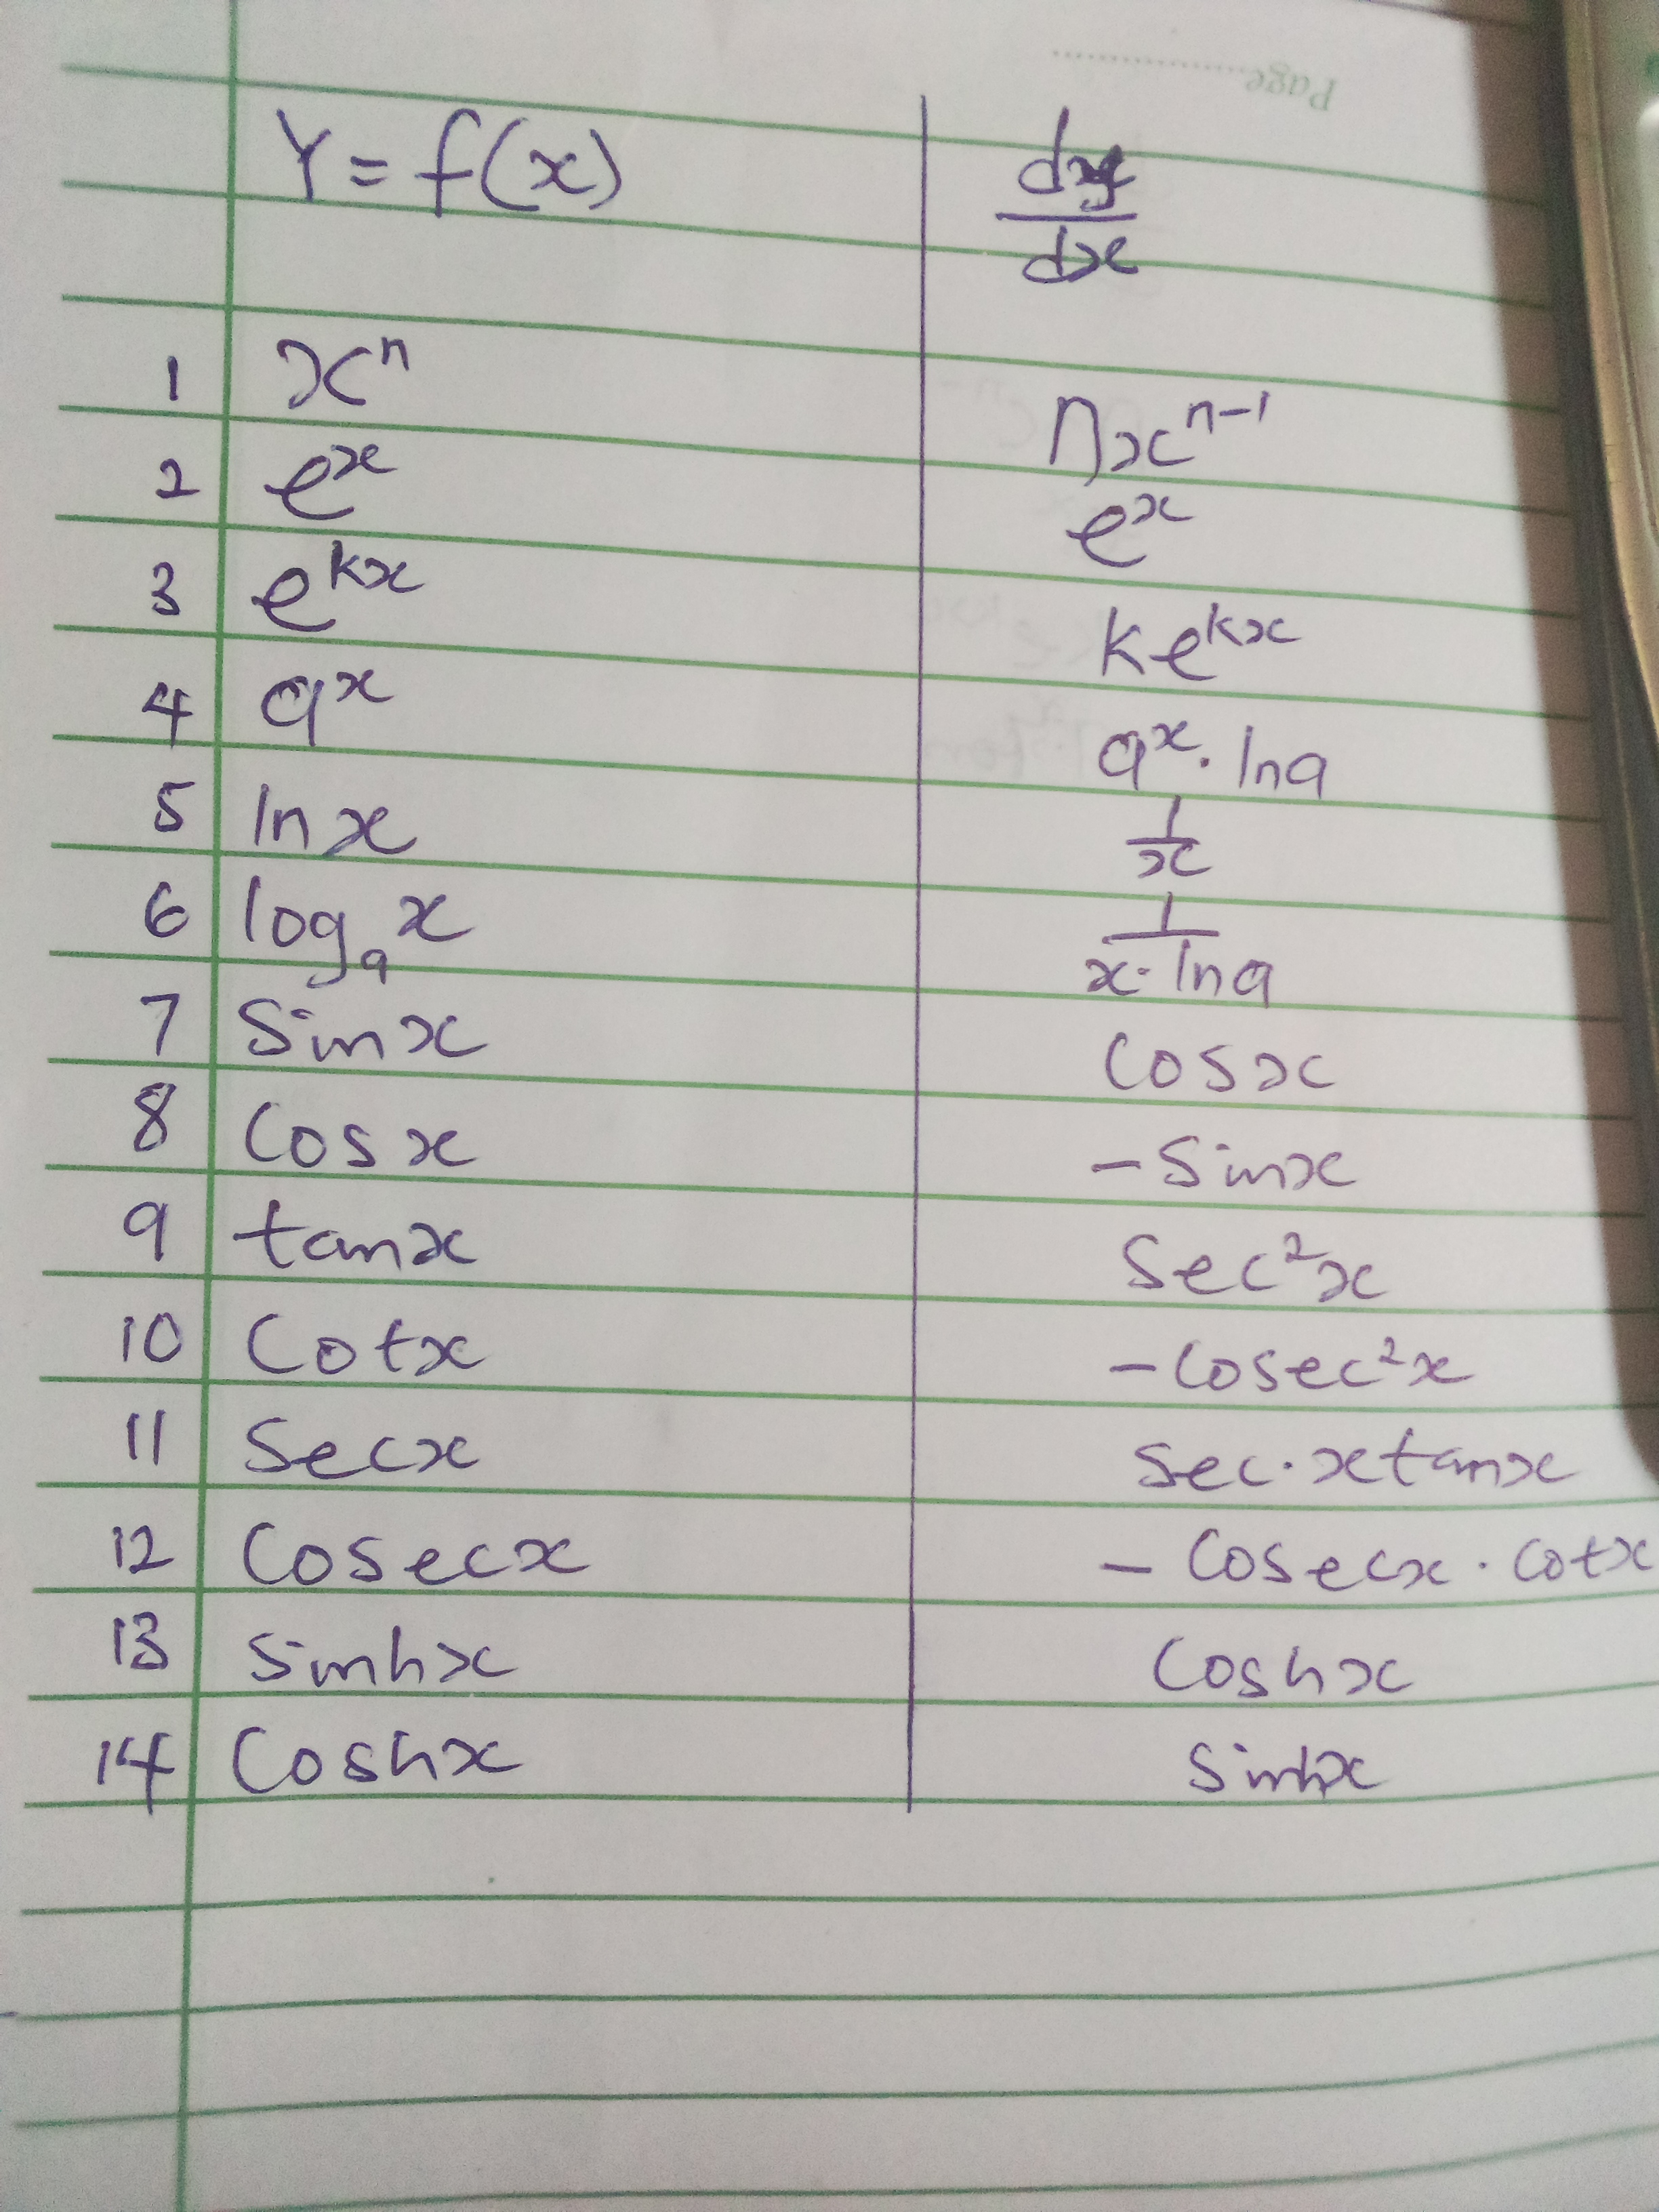 Page
Y = f(x) dy/dx
1 xⁿ nxⁿ⁻¹
2 eˣ eˣ
3 eᵏˣ keᵏˣ
4 aˣ aˣ · ln a
5 ln x 1/x
6 logₐ x 1/(x · ln a)
7 Sinx Cosx
8 Cosx – Sinx
9 tanx Sec²x
10 Cotx – Cosec²x
11 Secx Sec·xtanx
12 Cosecx – Cosecx · Cotx
13 Sinhx Coshx
14 Coshx Sinhx